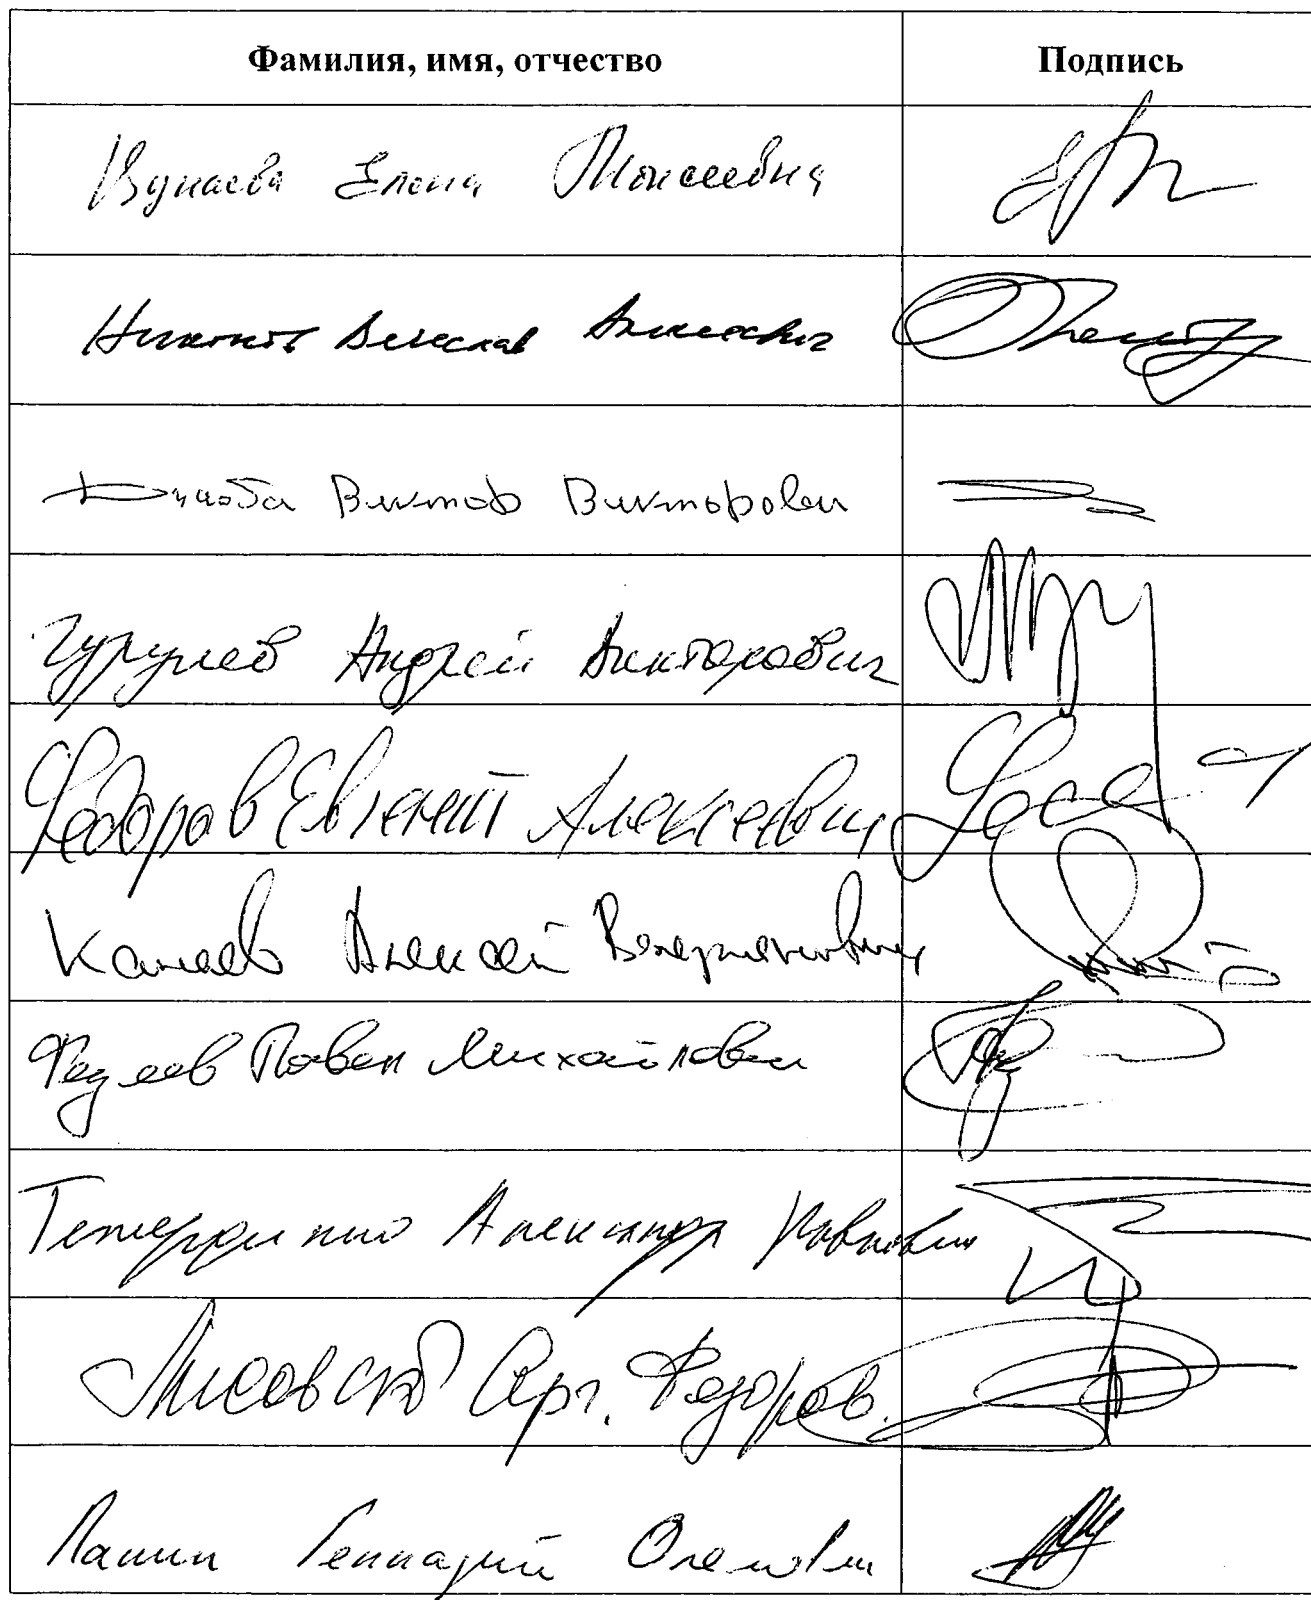 Фамилия, имя, отчество Подпись
Елена Моисеевна
Никонов Вячеслав Алексеевич
Дзюба Виктор Викторович
Гурулев Андрей Викторович
Федоров Евгений Алексеевич
Канаев Алексей Валерианович
Федяев Павел Михайлович
Тетердинко Александр Павлович
Лисовский Серг. Федоров.
Панин Геннадий Олегович